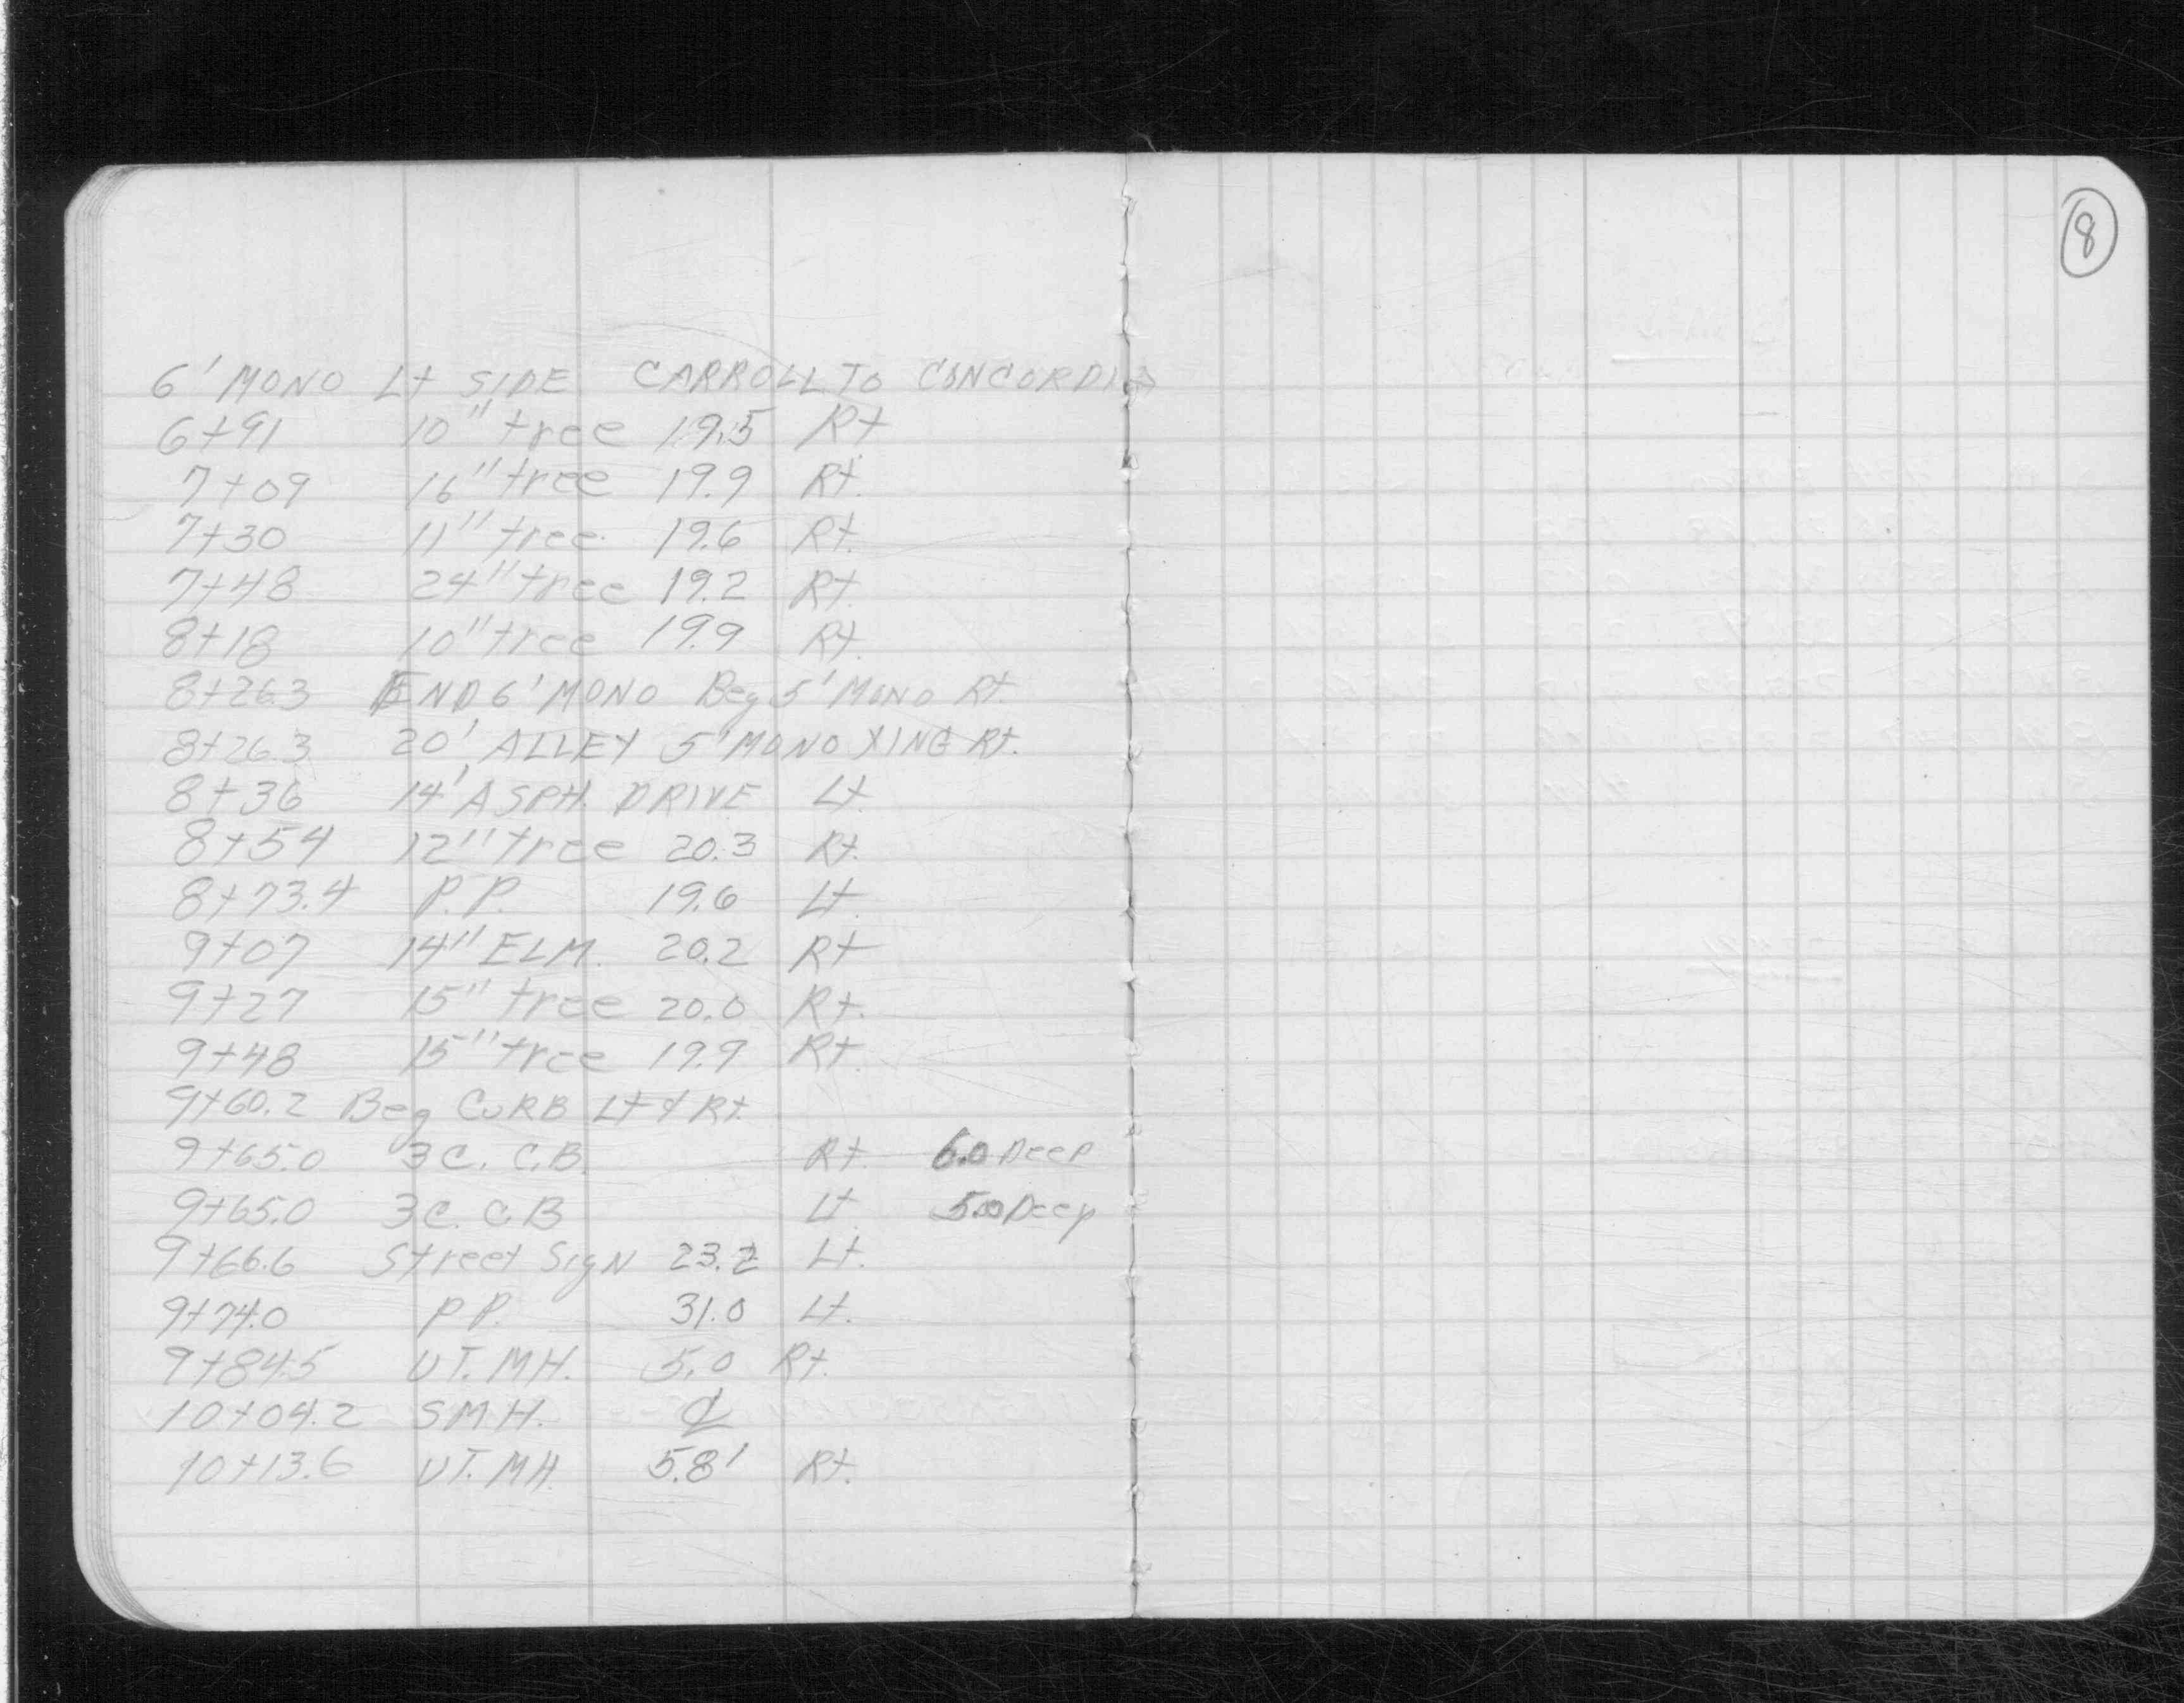 8
6' MONO Lt SIDE CARROLL TO CONCORDIA
6+91 10" tree 19.5 Rt
7+09 16" tree 19.9 Rt.
7+30 11" tree 19.6 Rt.
7+48 24" tree 19.2 Rt.
8+18 10" tree 19.9 Rt.
8+26.3 END 6' MONO Beg 5' MONO Rt.
8+26.3 20' ALLEY 5' MONO XING Rt.
8+36 14' ASPH. DRIVE Lt.
8+54 12" tree 20.3 Rt.
8+73.4 P.P. 19.6 Lt.
9+07 14" ELM. 20.2 Rt
9+27 15" tree 20.0 Rt.
9+48 15" tree 19.9 Rt.
9+60.2 Beg CURB Lt & Rt.
9+65.0 3C. C.B. Rt. 6.0 Deep
9+65.0 3C. C B Lt. 5.0 Deep
9+66.6 Street Sign 23.2 Lt.
9+74.0 P.P. 31.0 Lt.
9+84.5 UT. MH. 5.0 Rt.
10+04.2 SMH. ℄
10+13.6 UT. MH. 5.8' Rt.